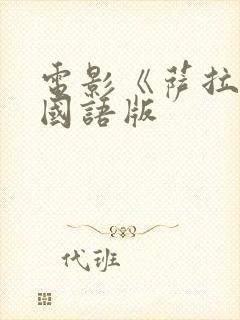 電影《薩拉
國語版
代班